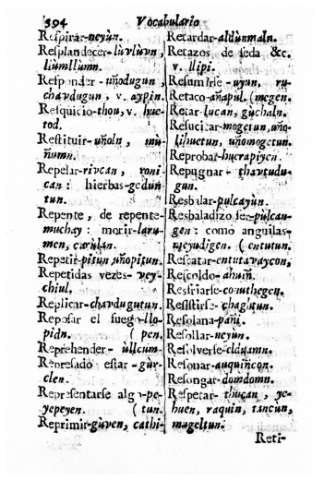 394 Vocabulario
Respirar-neyün.
Resplandecer-lùvlùvn,
liùmllùmn.
Responder-uñodugun,
chavdugun, v. aypin.
Resquicio-thou, v. huc-
tod.
Restituir-uñoln, mu-
ñumn.
Repelar-rivcan, voni-
can: hierbas-gedun
tun.
Repente, de repente-
muchay: morir-laru-
men, carùlan.
Repetir-pitun, uñopitun.
Repetidas vezes-vey-
chiul.
Replicar-chavdugutun.
Reposar el fuego-llo-
pidn. (pen.
Reprehender-ùllcum-
Represado estar-gùr-
clen.
Representarse algo-pe-
yepeyen. (tun.
Reprimir-gùven, cathi-
Retardar-aldùnmaln.
Retazos de seda &c.
v. llipi.
Resumirse-uyun, ru
Retaco-añapul. (megen.
Retar-lucan, guchaln.
Resucitar-mogetun, uño-
lihuetun, uñomogetun.
Reprobar-hucrapiyen.
Repugnar-thavtudu-
gun.
Resbalar-pulcayùn.
Resbaladizo ser-pùlcau-
gen: como anguilas-
uyudigen. (entutun.
Rescatar-entutavaycon,
Rescoldo-ahuiñ.
Resfriarse-conuthegen.
Resistirse-chagùtun.
Resolana-pañi.
Resollar-neyùn.
Resolverse-elduamn.
Resonar-auquiñcon.
Resongar-domdomn.
Respetar-thucan, ye-
huen, raquin, tancun,
mageltun.
Reti-